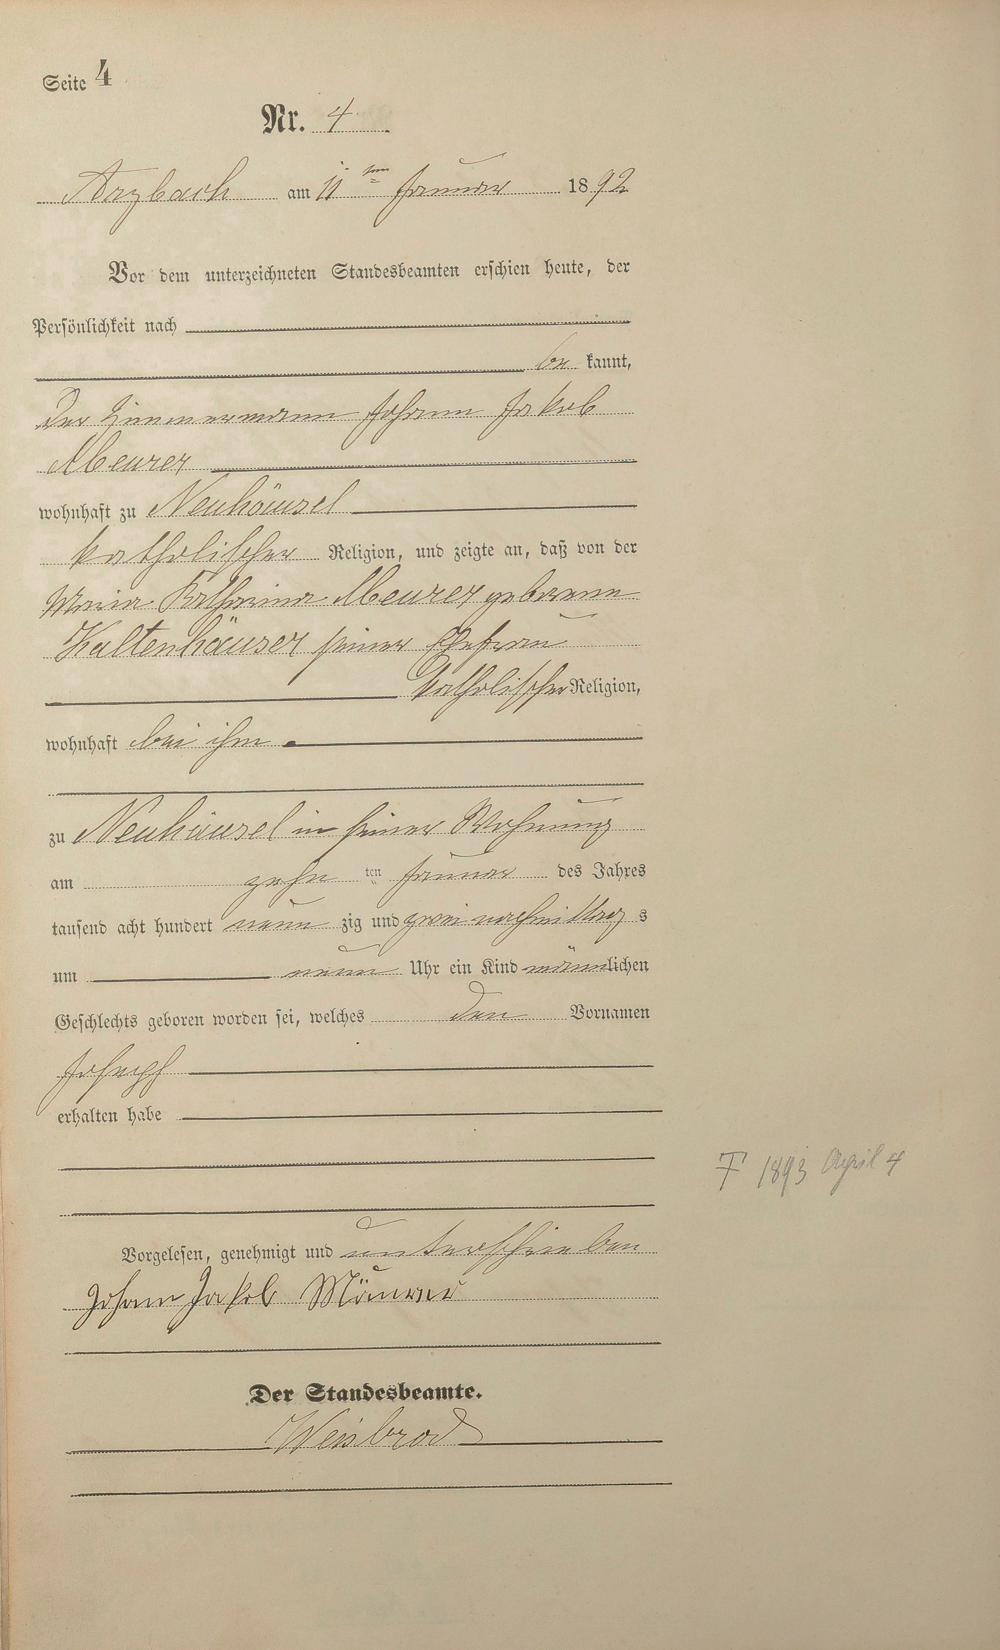 Seite 4
Nr. 4
Arzbach am 11 ten Januar 1892
Vor dem unterzeichneten Standesbeamten erschien heute, der
Persönlichkeit nach
be kannt,
der Zimmermann Johann Jakob
Meurer
wohnhaft zu Neuhäusel
katholischer Religion, und zeigte an, daß von der
Maria Katharina Meurer geborene
Kaltenhäuser seiner Ehefrau
katholischer Religion,
wohnhaft bei ihm
zu Neuhäusel in seiner Wohnung
am zehn ten Januar des Jahres
tausend acht hundert neun zig und zwei nachmittag s
um neun Uhr ein Kind männlichen
Geschlechts geboren worden sei, welches den Vornamen
Joseph
erhalten habe
† 1893 April 4
Vorgelesen, genehmigt und unterschrieben
Johann Jakob Mäurer
Der Standesbeamte.
Weisbrod